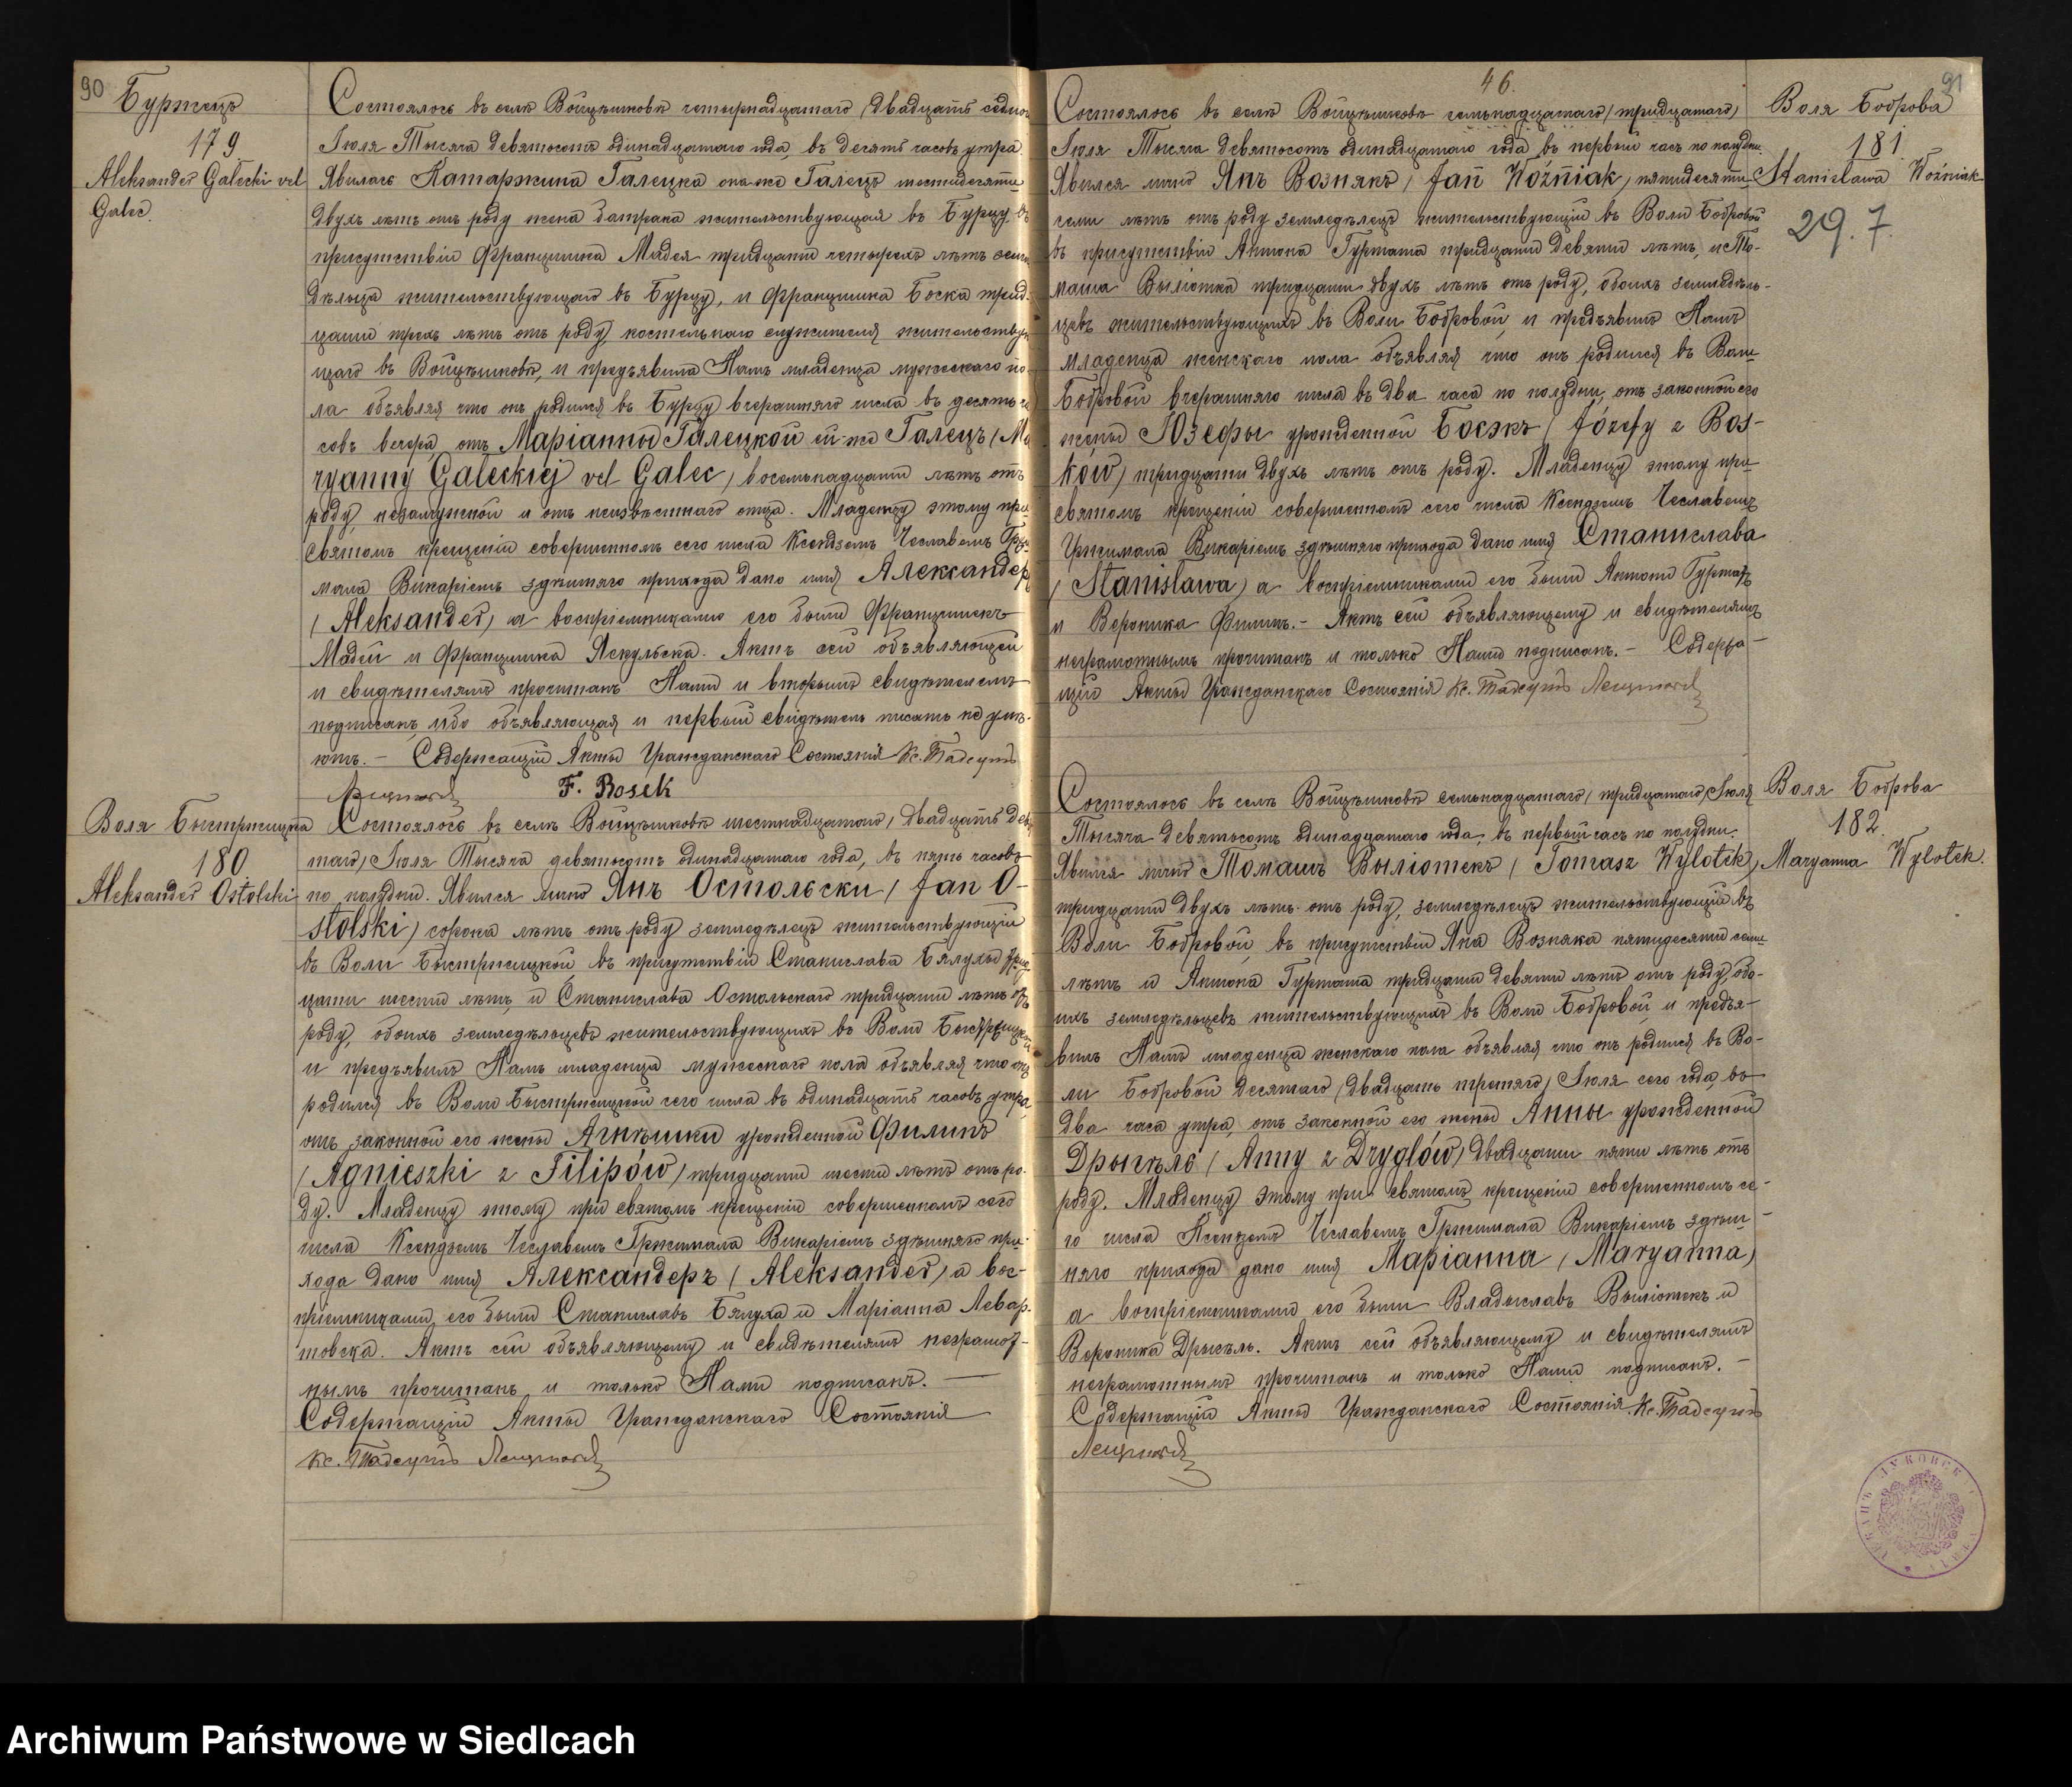 90
Буржецъ
179
Aleksander Gałecki vel
Galec.
Состоялось въ селѣ Войцѣшковѣ четырнадцатаго (двадцать седьмо
Іюля Тысяча девятьсотъ одинадцатаго года, въ десять часовъ утра.
Явилась Катаржина Галецка она-же Галецъ шестидесяти
двухъ лѣтъ отъ роду жена батрака жительствующая въ Бурцу въ
присутствіи Францишка Мадея тридцати четырехъ лѣтъ земле
дѣльца жительствующаго въ Бурцу, и Францишка Боска трид-
цати трехъ лѣтъ отъ роду костельнаго служителя жительствую
щаго въ Войцѣшковѣ, и предъявила Намъ младенца мужескаго по-
ла объявляя что онъ родился въ Бурцу вчерашняго числа въ десять ча
совъ вечера, отъ Маріанны Галецкой ей-же Галецъ (Ma
ryanny Gałeckiej vel Galec) восемьнадцати лѣтъ отъ
роду, незамужной и отъ неизвѣстнаго отца. Младенцу этому при
святомъ крещеніи совершенномъ сего числа Ксендзомъ Чеславомъ Грж-
мала Викаріемъ здѣшняго прихода дано имя Александеръ
(Aleksander) а воспріемниками его были Францишекъ
Мадей и Францишка Яскульска. Актъ сей объявляющей
и свидѣтелямъ прочитанъ Нами и вторымъ свидѣтелемъ
подписанъ, ибо объявляющая и первый свидѣтель писать не умѣ-
ютъ. — Содержащій Акты Гражданскаго Состоянія Кс. Тадеушъ
F. Bosek
Воля Быстржицка
180
Aleksander Ostolski
Состоялось въ селѣ Войцѣшковѣ шестнадцатаго (двадцать девя
таго) Іюля Тысяча девятьсотъ одинадцатаго года, въ пять часовъ
по полудни. Явился лично Янъ Остольски (Jan O-
stolski) сорока лѣтъ отъ роду земледѣлецъ жительствующій
въ Воли Быстржицкой, въ присутствіи Станислава Бялухы трид-
цати шести лѣтъ, и Станислава Остольскаго тридцати лѣтъ отъ
роду, обоихъ земледѣльцевъ жительствующихъ въ Воли Быстржицкой
и предъявилъ Намъ младенца мужескаго пола объявляя что онъ
родился въ Воли Быстржицкой сего числа въ одинадцать часовъ утра
отъ законной его жены Агнѣшки урожденной Филипъ
(Agnieszki z Filipów) тридцати шести лѣтъ отъ ро-
ду. Младенцу этому при святомъ крещеніи совершенномъ сего
числа Ксендзомъ Чеславомъ Гржимала Викаріемъ здѣшняго при-
хода дано имя Александеръ (Aleksander) а вос-
пріемницами его были Станиславъ Бялуха и Маріанна Левар-
товска. Актъ сей объявляющему и свидѣтелямъ неграмот-
нымъ прочитанъ и только Нами подписанъ. —
Содержащій Акты Гражданскаго Состоянія
Кс. Тадеушъ
46.
91
Состоялось въ селѣ Войцѣшковѣ семьнадцатаго (тридцатаго)
Іюля Тысяча девятьсотъ одинадцатаго года, въ первый часъ по полудни.
Явился лично Янъ Вознякъ (Jan Woźniak) пятидесяти
семи лѣтъ отъ роду земледѣлецъ жительствующій въ Воли Бобровой
въ присутствіи Антона Гуртата тридцати девяти лѣтъ, и То-
маша Вылютка тридцати двухъ лѣтъ отъ роду, обоихъ земледѣль-
цевъ жительствующихъ въ Воли Бобровой и предъявилъ Намъ
младенца женскаго пола объявляя что онъ родился въ Воли
Бобровой вчерашняго числа въ два часа по полудни, отъ законной его
жены Юзефы урожденной Боскъ (Józefy z Bos-
ków) тридцати двухъ лѣтъ отъ роду. Младенцу этому при
святомъ крещеніи совершенномъ сего числа Ксендзомъ Чеславомъ
Гржимала Викаріемъ здѣшняго прихода дано имя Станислава
(Stanisława) а воспріемниками его были Антони Гуртатъ
и Вероника Филипъ. — Актъ сей объявляющему и свидѣтелямъ
неграмотнымъ прочитанъ и только Нами подписанъ. — Содержа-
щій Акты Гражданскаго Состоянія Кс. Тадеушъ
Воля Боброва
181.
Stanisława Woźniak
29. 7.
Состоялось въ селѣ Войцѣшковѣ семьнадцатаго (тридцатаго) Іюля
Тысяча девятьсотъ одинадцатаго года, въ первый часъ по полудни.
Явился лично Томашъ Вылютекъ (Tomasz Wylotek)
тридцати двухъ лѣтъ отъ роду, земледѣлецъ жительствующій въ
Воли Бобровой, въ присутствіи Яна Возняка пятидесяти семи
лѣтъ и Антона Гуртата тридцати девяти лѣтъ отъ роду, обо-
ихъ земледѣльцевъ жительствующихъ въ Воли Бобровой и предъя-
вилъ Намъ младенца женскаго пола объявляя что онъ родился въ Во-
ли Бобровой десятаго (двадцать третяго) Іюля сего года въ
два часа утра, отъ законной его жены Анны урожденной
Дрыгѣль (Anny z Dryglów) двадцати пяти лѣтъ отъ
роду. Младенцу этому при святомъ крещеніи совершенномъ се-
го числа Ксендзомъ Чеславомъ Гржимала Викаріемъ здѣш-
няго прихода дано имя Маріанна (Maryanna)
а воспріемниками его были Владыславъ Вылютекъ и
Вероника Дрыгѣль. Актъ сей объявляющему и свидѣтелямъ
неграмотнымъ прочитанъ и только Нами подписанъ. —
Содержащій Акты Гражданскаго Состоянія Кс. Тадеушъ
Воля Боброва
182.
Maryanna Wylotek.
Archiwum Państwowe w Siedlcach